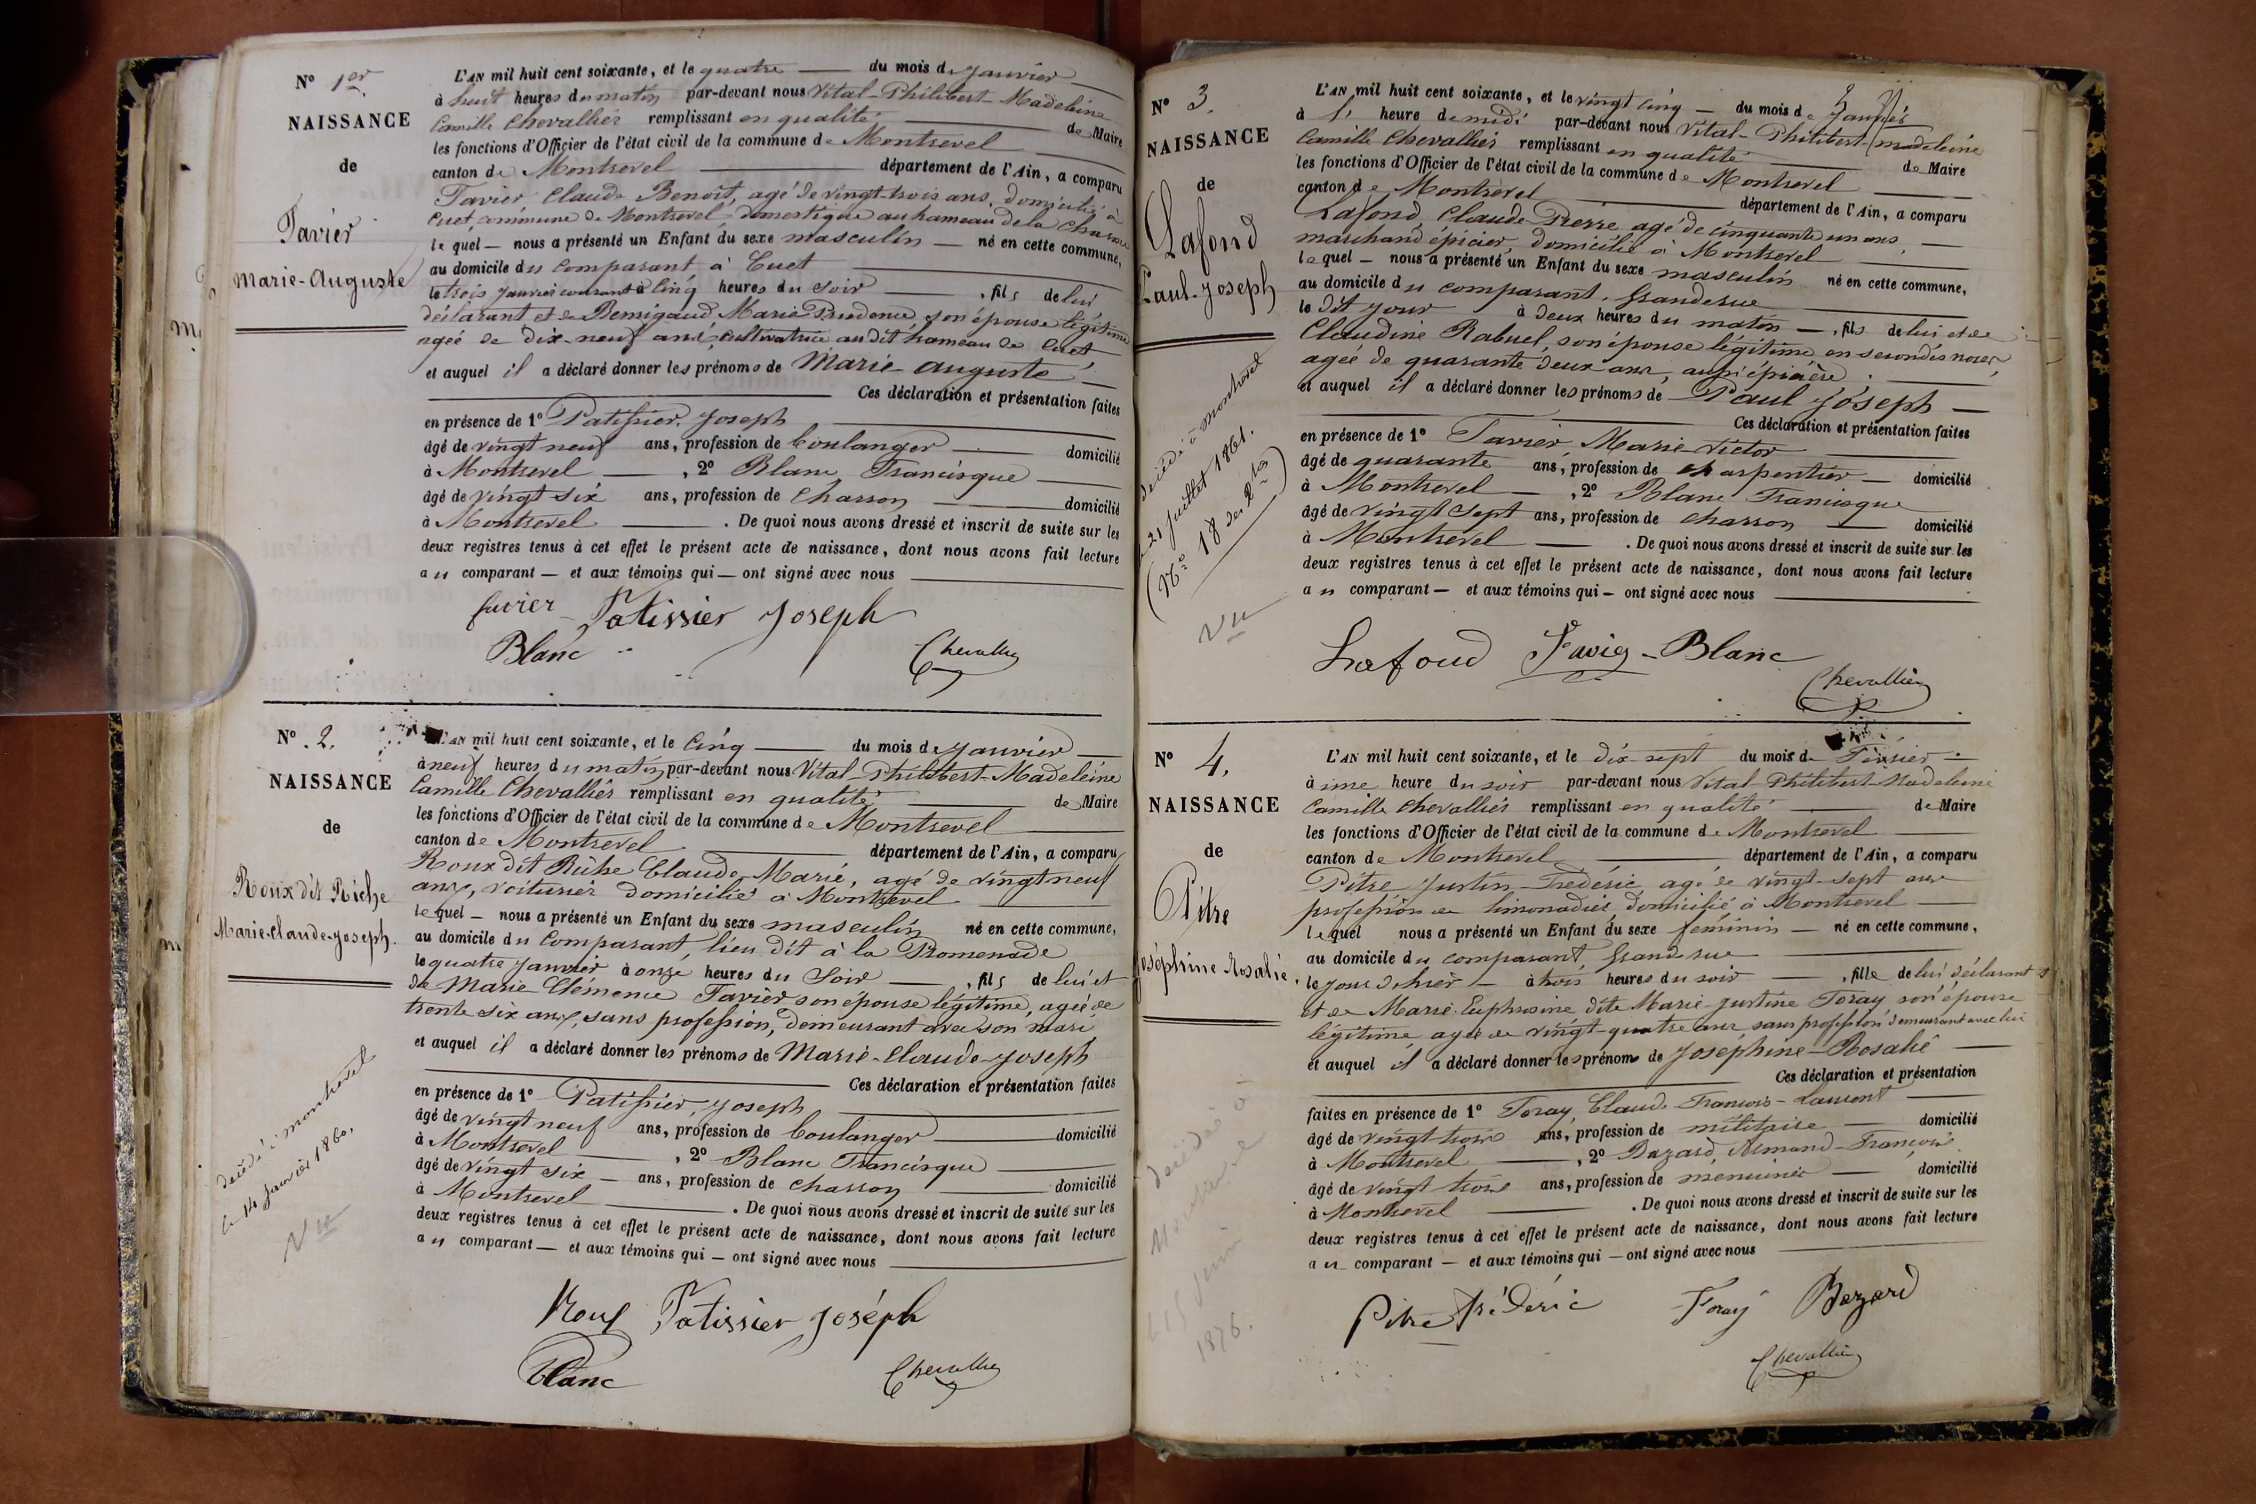 N° 1er
NAISSANCE
de
Favier
Marie-Auguste
L'AN mil huit cent soixante, et le quatre du mois de Janvier
à huit heures du matin par-devant nous Vital-Philibert-Madeleine
Camille Chevallier remplissant en qualité de Maire
les fonctions d'Officier de l'état civil de la commune de Montrevel
canton de Montrevel département de l'Ain, a comparu
Favier Claude Benoît, agé de vingt-trois ans, domicilié à
Cuet, commune de Montrevel, domestique au hameau de la
le quel nous a présenté un Enfant du sexe masculin né en cette commune,
au domicile du comparant à Cuet
le trois janvier courant à cinq heures du soir , fils de lui
déclarant et de Marie Prudence son épouse légitime
agée de dix-neuf ans, cultivatrice au dit hameau de Cuet
et auquel il a déclaré donner les prénoms de Marie Auguste
Ces déclaration et présentation faites
en présence de 1° Patissier, Joseph
âgé de vingt neuf ans, profession de boulanger domicilié
à Montrevel , 2° Blanc, Francisque
âgé de vingt six ans, profession de charron domicilié
à Montrevel . De quoi nous avons dressé et inscrit de suite sur les
deux registres tenus à cet effet le présent acte de naissance, dont nous avons fait lecture
au comparant et aux témoins qui ont signé avec nous
favier Patissier Joseph
Blanc Chevallier
N° 2.
NAISSANCE
de
Roux dit Riche
Marie-Claude-Joseph.
décédé à montrevel
le 14 janvier 1860.
Vu
L'AN mil huit cent soixante, et le cinq du mois de Janvier
à neuf heures du matin par-devant nous Vital-Philibert-Madeleine
Camille Chevallier remplissant en qualité de Maire
les fonctions d'Officier de l'état civil de la commune de Montrevel
canton de Montrevel département de l'Ain, a comparu
Roux dit Riche Claude Marie, agé de vingt neuf
ans, voiturier domicilié à Montrevel
le quel nous a présenté un Enfant du sexe masculin né en cette commune,
au domicile du comparant, lieu dit à la Promenade
le quatre janvier à onze heures du soir , fils de lui et
de Marie Clémence Favier son épouse légitime, agée de
trente six ans, sans profession, demeurant avec son mari
et auquel il a déclaré donner les prénoms de Marie-Claude-Joseph
Ces déclaration et présentation faites
en présence de 1° Patissier, Joseph
âgé de vingt neuf ans, profession de boulanger domicilié
à Montrevel , 2° Blanc Francisque
âgé de vingt six ans, profession de charron domicilié
à Montrevel . De quoi nous avons dressé et inscrit de suite sur les
deux registres tenus à cet effet le présent acte de naissance, dont nous avons fait lecture
au comparant et aux témoins qui ont signé avec nous
Roux Patissier Joséph
Blanc Chevallier
N° 3.
NAISSANCE
de
Lafond
Paul-Joseph
décédé à montrevel
le 21 juillet 1861.
(N° 18 des Dcès)
Vu
L'AN mil huit cent soixante, et le vingt cinq du mois de Janvier
à l' heure de midi par-devant nous Vital-Philibert-madeleine
Camille Chevallier remplissant en qualité de Maire
les fonctions d'Officier de l'état civil de la commune de Montrevel
canton de Montrevel département de l'Ain, a comparu
Lafond, Claude-Pierre agé de cinquante un ans,
marchand épicier, domicilié à Montrevel
le quel nous a présenté un Enfant du sexe masculin né en cette commune,
au domicile du comparant, Grande rue
le dit jour à deux heures du matin , fils de lui et de
Claudine Rabuel, son épouse légitime en secondes noces,
agée de quarante deux ans, aussi épicière
et auquel il a déclaré donner les prénoms de Paul Joseph
Ces déclaration et présentation faites
en présence de 1° Favier, Marie-Victor
âgé de quarante ans, profession de charpentier domicilié
à Montrevel , 2° Blanc Francisque
âgé de vingt sept ans, profession de charron domicilié
à Montrevel . De quoi nous avons dressé et inscrit de suite sur les
deux registres tenus à cet effet le présent acte de naissance, dont nous avons fait lecture
au comparant et aux témoins qui ont signé avec nous
Lafond Favier Blanc
Chevallier
N° 4.
NAISSANCE
de
Pitre
Joséphine Rosalie.
décédée à
1876.
L'AN mil huit cent soixante, et le dix-sept du mois de Février
à une heure du soir par-devant nous Vital-Philibert-Madeleine
Camille Chevallier remplissant en qualité de Maire
les fonctions d'Officier de l'état civil de la commune de Montrevel
canton de Montrevel département de l'Ain, a comparu
Pitre Justin-Frédéric, agé de vingt-sept ans
profession de limonadier, domicilié à Montrevel
le quel nous a présenté un Enfant du sexe féminin né en cette commune,
au domicile du comparant Grande rue
le jour d'hier à trois heures du soir , fille de lui déclarant
et de Marie-Euphrosine dite Marie-Justine Foray son épouse
légitime agée de vingt-quatre ans sans profession demeurant avec lui
et auquel il a déclaré donner les prénoms de Joséphine-Rosalie
Ces déclaration et présentation
faites en présence de 1° Foray, Claude-François-Laurent
âgé de vingt trois ans, profession de militaire domicilié
à Montrevel , 2° Bazard, Armand-François
âgé de vingt trois ans, profession de menuisier domicilié
à Montrevel . De quoi nous avons dressé et inscrit de suite sur les
deux registres tenus à cet effet le présent acte de naissance, dont nous avons fait lecture
au comparant et aux témoins qui ont signé avec nous
Pitre frédéric Foray Bazard
Chevallier